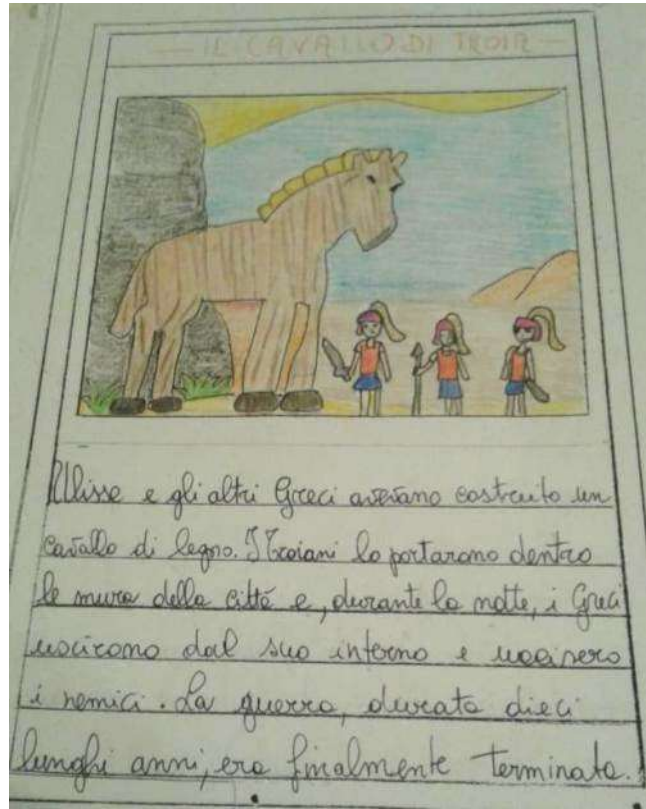 IL CAVALLO DI TROIA
Ulisse e gli altri Greci avevano costruito un
cavallo di legno. I Troiani lo portarono dentro
le mura della città e, durante la notte, i Greci
uscirono dal suo interno e uccisero
i nemici. La guerra, durata dieci
lunghi anni, era finalmente terminata.